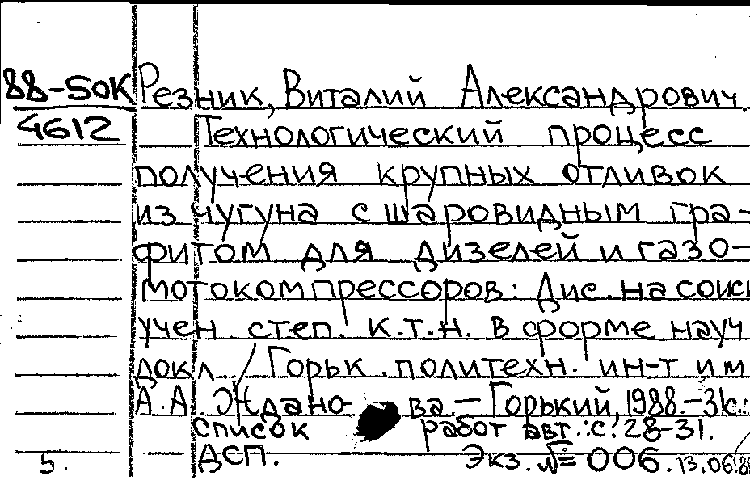 88-5ОК Резник, Виталий Александрович.
4612 Технологический процесс
получения крупных отливок
из чугуна с шаровидным гра-
фитом для дизелей и газо-
мотокомпрессоров: Дис. на соиск
учен. степ. к.т.н. в форме науч
докл. / Горьк. политехн. ин-т им
А.А. Ждано- ва. – Горький, 1988. – 31с.:
Список работ авт.: с. 28-31.
ДСП. Экз. № 006.
5. 13.06.88